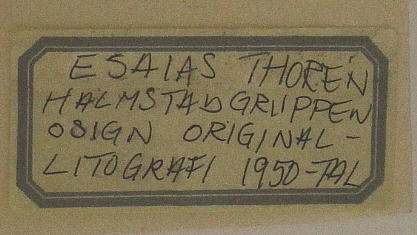 ESAIAS THORÉN
HALMSTADGRUPPEN
OSIGN ORIGINAL-
LITOGRAFI 1950-TAL